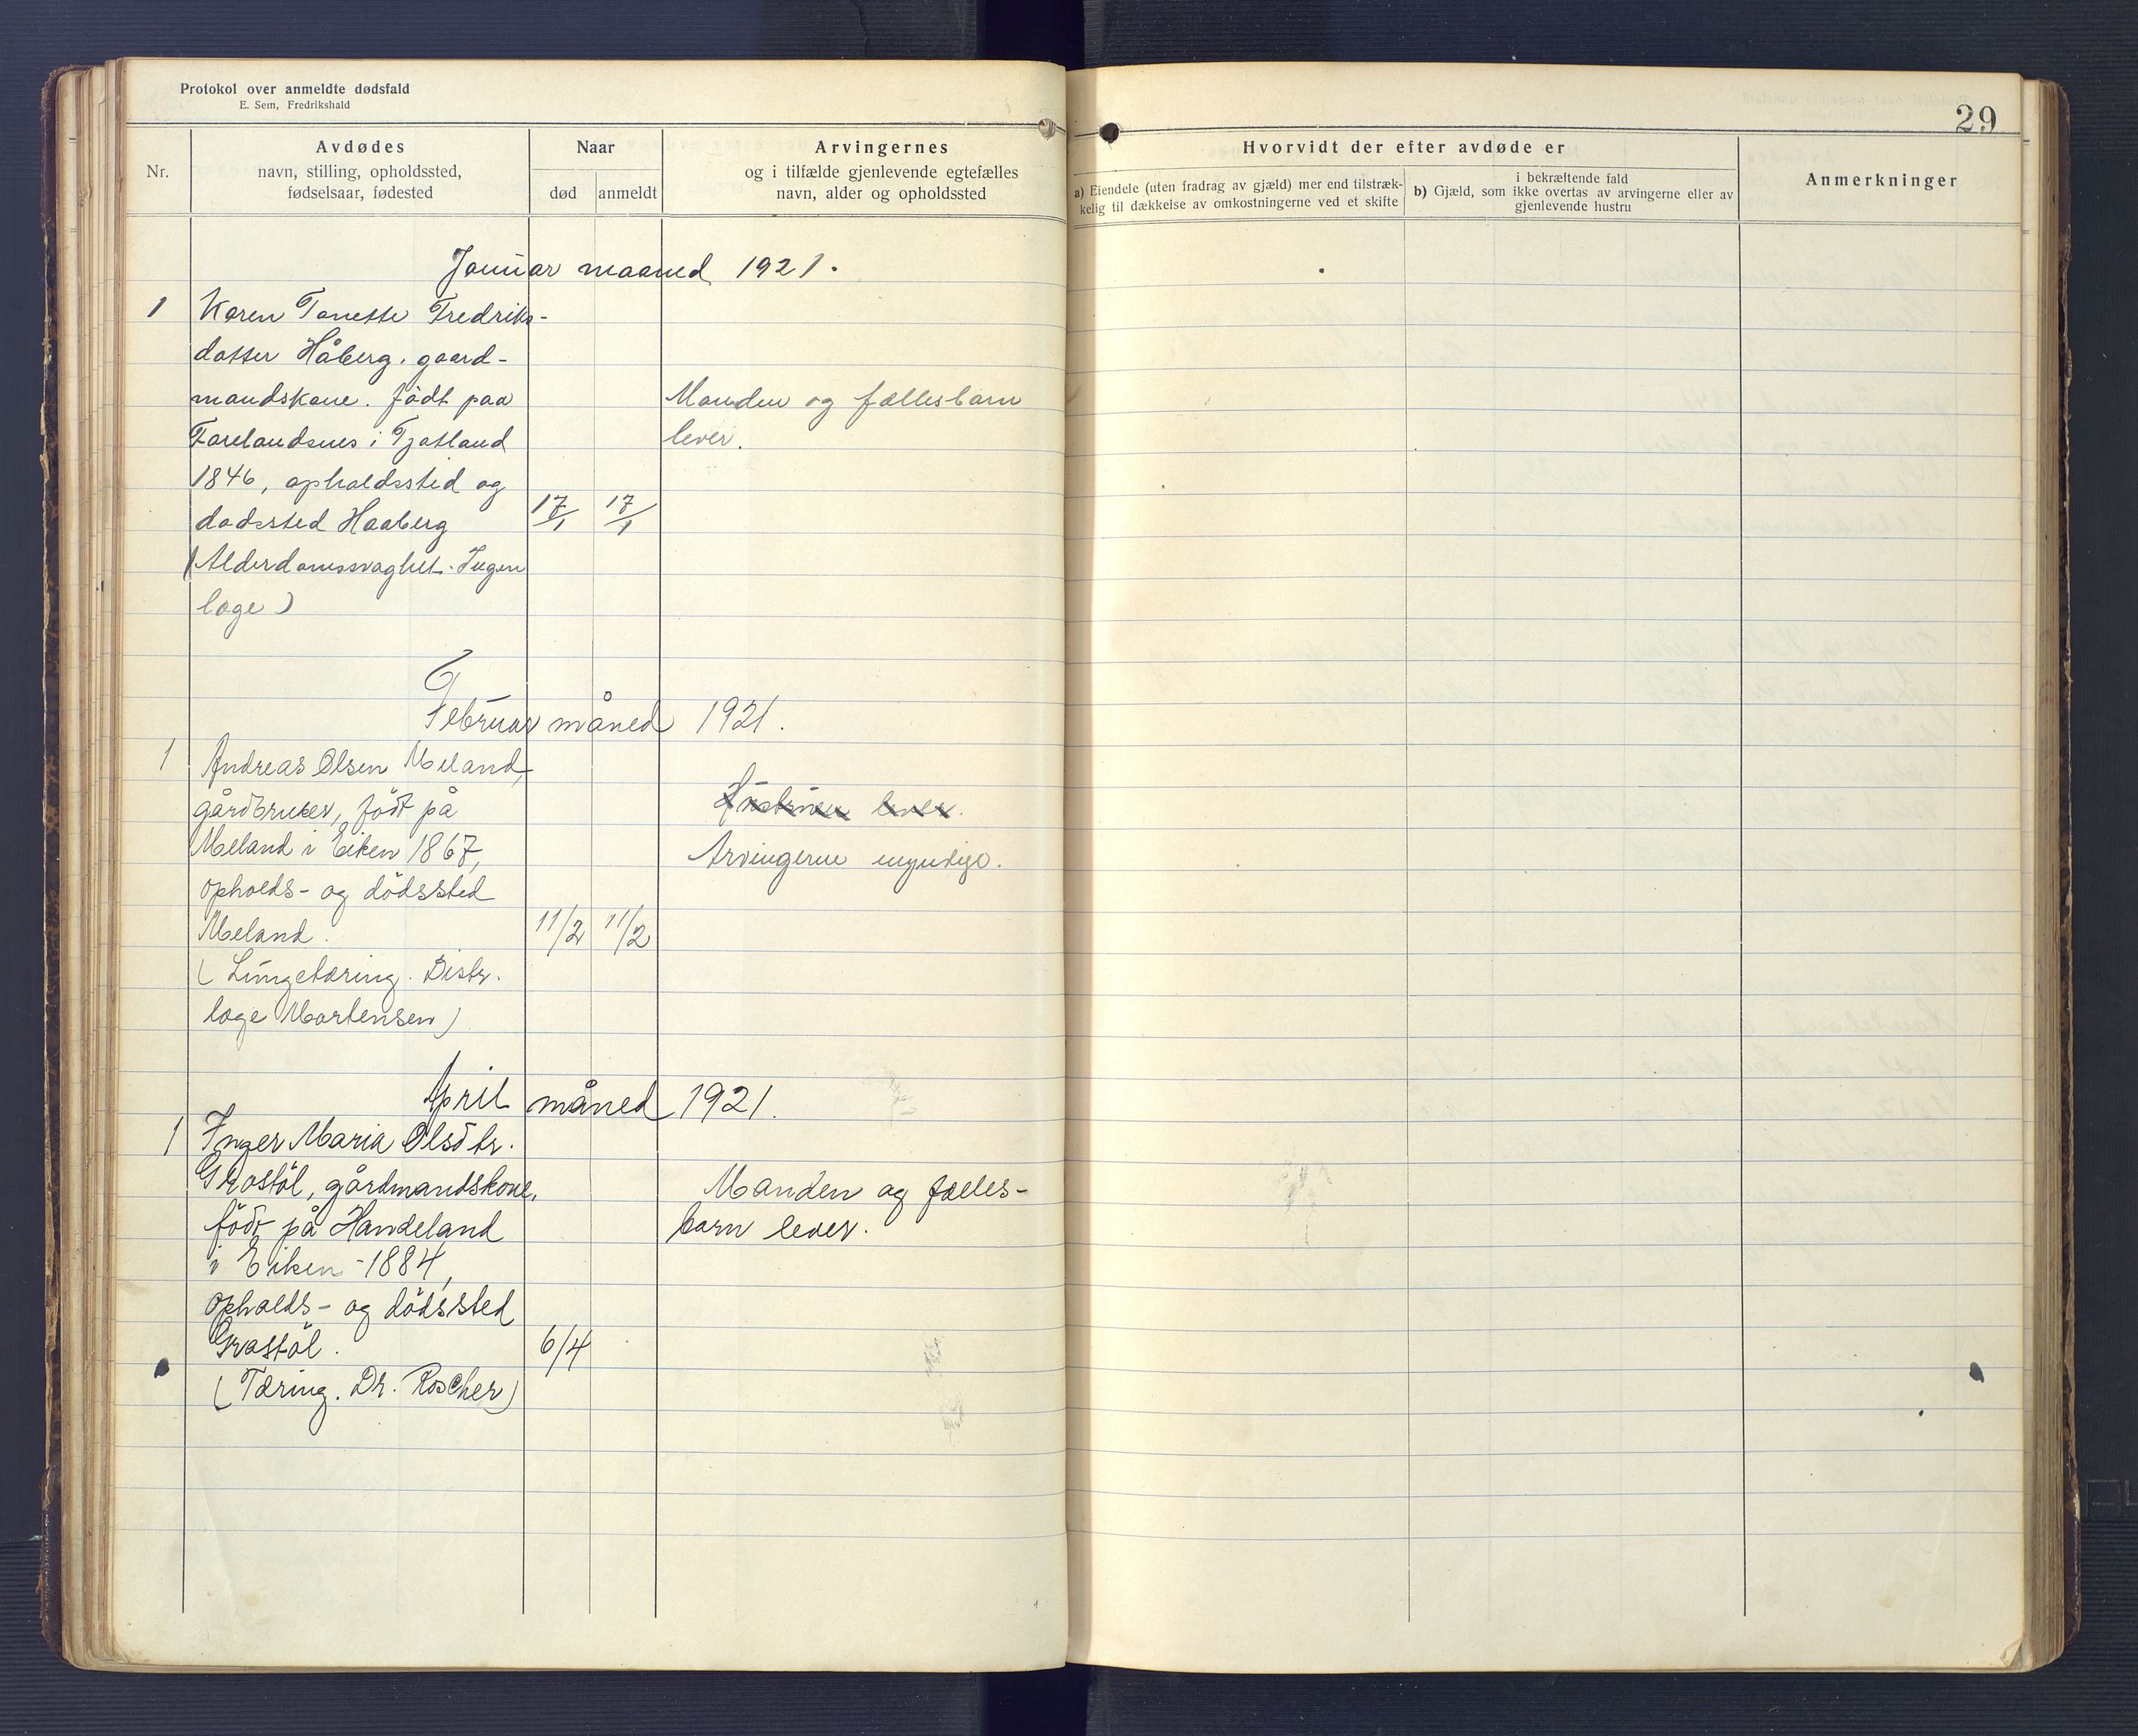 Protokol over anmeldte dødsfald
E. Sem, Fredrikshald
29
Nr.
Avdødes
navn, stilling, opholdssted,
fødselsaar, fødested
Naar
død
anmeldt
Arvingernes
og i tilfælde gjenlevende egtefælles
navn, alder og opholdssted
Hvorvidt der efter avdøde er
a) Eiendele (uten fradrag av gjæld) mer end tilstræk-
kelig til dækkelse av omkostningerne ved et skifte
i bekræftende fald
b) Gjæld, som ikke overtas av arvingerne eller av
gjenlevende hustru
Anmerkninger
Januar maaned 1921.
1 Karen Tonette Fredriks-
datter Håberg. gaard-
mandskone. født paa
Farelandsnes i Tjatland
1846, opholdssted og
dødssted Haaberg 17/1 17/1
(Alderdomssvaghet. Ingen
læge)
Manden og fællesbarn
lever.
Februar måned 1921.
1 Andreas Olsen Meland,
gårdbruker, född på
Meland i Eiken 1867,
opholds- og dödssted
Meland. 11/2 11/2
(Lungetæring. Distr.
læge Mortensen)
Hustruen lever.
Arvingerne myndige.
April måned 1921.
1 Inger Maria Olsdtr.
Grastöl, gårdmandskone,
född på Handeland
i Eiken - 1884,
opholds- og dödssted
Grastöl. 6/4
(Tæring. Dr. Roscher)
Manden og fælles-
barn lever.